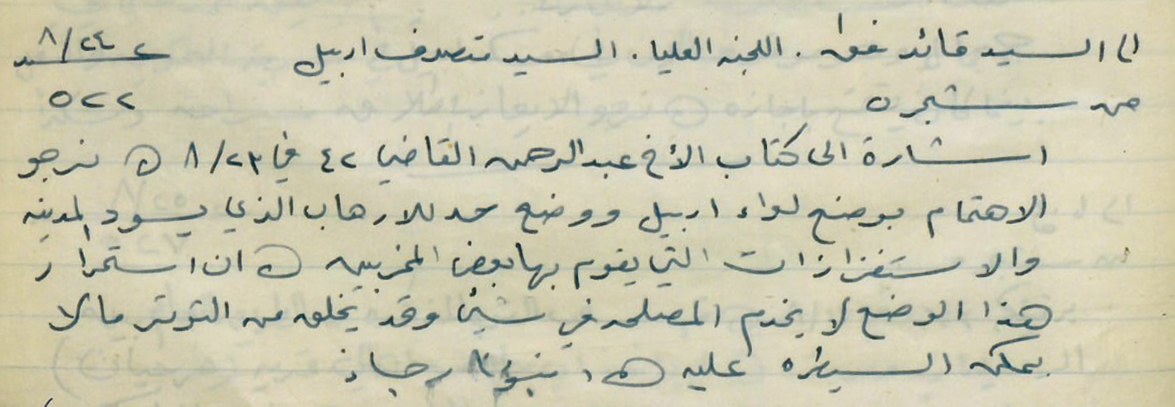 الى السيد قائد . اللجنه العليا . السيد متصرف اربيل ٨/٢٤
من شجره ٥٢٢
اشارة الى كتاب الأخ عبدالرحمن القاضي ٤٢ في ٨/٢٣ ه نرجو
الاهتمام بوضع لواء اربيل ووضع حد للارهاب الذي يسود المدينه
والاستفزازات التي يقوم بها بعض المخربين ه ان استمرار
هذا الوضع لا يخدم المصلحه في شيئ وقد يخلق من التوتر مالا
يمكن السيطره عليه ه رجاء